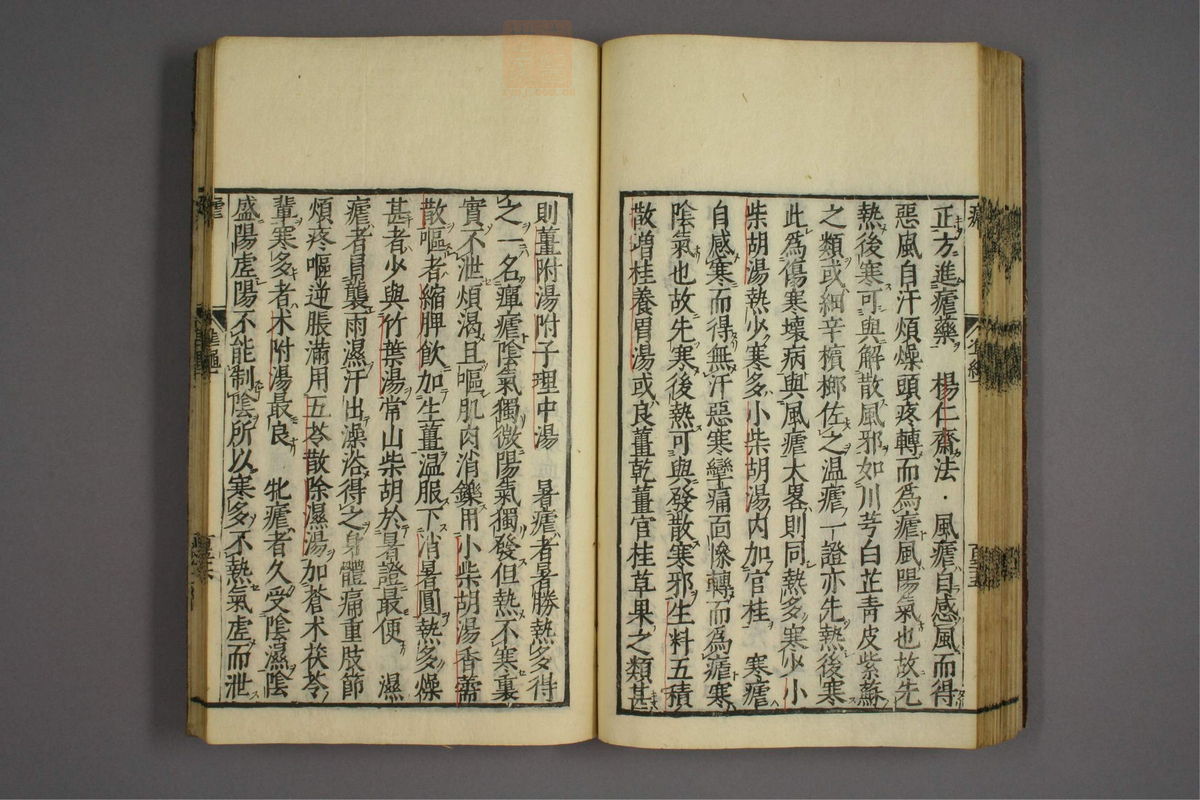 正方進瘧藥 楊仁齋法・風瘧自感風而得
惡風自汗煩燥頭疼轉而為瘧風陽氣也故先
熱後寒可與解散風邪如川芎白芷青皮紫蘇
之類或細辛檳榔佐之温瘧一證亦先熱後寒
此為傷寒壞病與風瘧大畧則同熱多寒少小
柴胡湯熱少寒多小柴胡湯内加官桂 寒瘧
自感寒而得無汗惡寒攣痛面慘轉而為瘧寒
陰氣也故先寒後熱可與發散寒邪生料五積
散増桂養胃湯或良薑乾薑官桂草果之類甚
則薑附湯附子理中湯 暑瘧者暑勝熱多得
之一名癉瘧陰氣獨微陽氣獨發但熱不寒裏
實不泄煩渴且嘔肌肉消鑠用小柴胡湯香薷
散嘔者縮脾飲加生薑温服下消暑圓熱多燥
甚者少與竹葉湯常山柴胡於暑證最便 濕
瘧者冒襲雨濕汗出澡浴得之身體痛重肢節
煩疼嘔逆脹滿用五苓散除濕湯加蒼朮茯苓
輩寒多者朮附湯最良 牝瘧者久受陰濕陰
盛陽虛陽不能制陰所以寒多不熱氣虛而泄